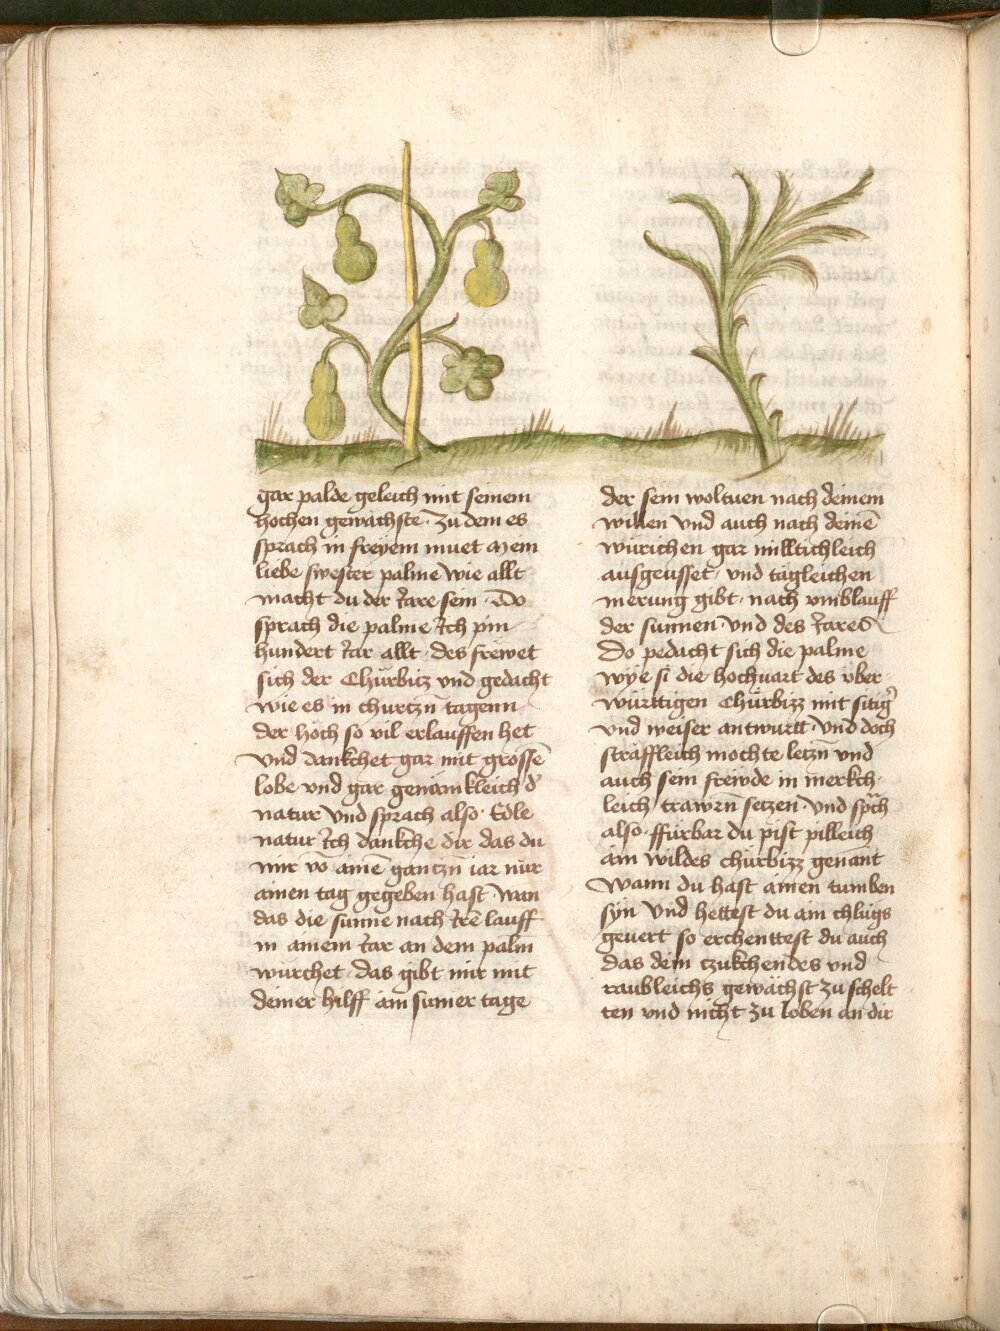 gar palde geleich mit seinem
hochen gewächste · zu dem es
sprach in freyem muet Mein
liebe swester palme wie allt
macht du der Jare sein · Do
sprach die palme Ich pin
hundert Jar allt · des frewet
sich der Chürbitz vnd gedacht
wie es in churtzn̄ tagenn
der höch so vil erlauffen het
vnd dankchet gar mit grossē
lobe vnd gar genämkleich d'
natur vnd sprach also · Edle
natur Ich dankche dir das du
mir vō amē gantzn̄ iar nür
ainen tag gegeben hast · wan
das die sunne nach Irē lauff
in ainem Jar an dem palm
würchet · das gibt mir mit
deiner hilff ain sumer tage
der sein woltuen nach deinem
willen vnd auch nach deinē
würichen gar milltichleich
ausgeusset · vnd tägleichen
merung gibt · nach vmblauff
der sunnen vnd des Jares
Do pedacht sich die palme
wye si die hochuart des vber
württigen Chürbizz mit sitig'
vnd weiser antwurtt · vnd doch
sträffleich möchte letzn̄ vnd
auch sein frewde in merkch
leich trawrn̄ setzen · vnd sp̄ch
also · ffürbar du pist pilleich
ain wildes chürbizz genant
Wann du hast ainen tumben
syn vnd hettest du ain chlügs
geuert so erchenttest du auch
das dein czukchendes vnd
raubleichs gewächst zu schelt
ten vnd nicht zu loben an dir